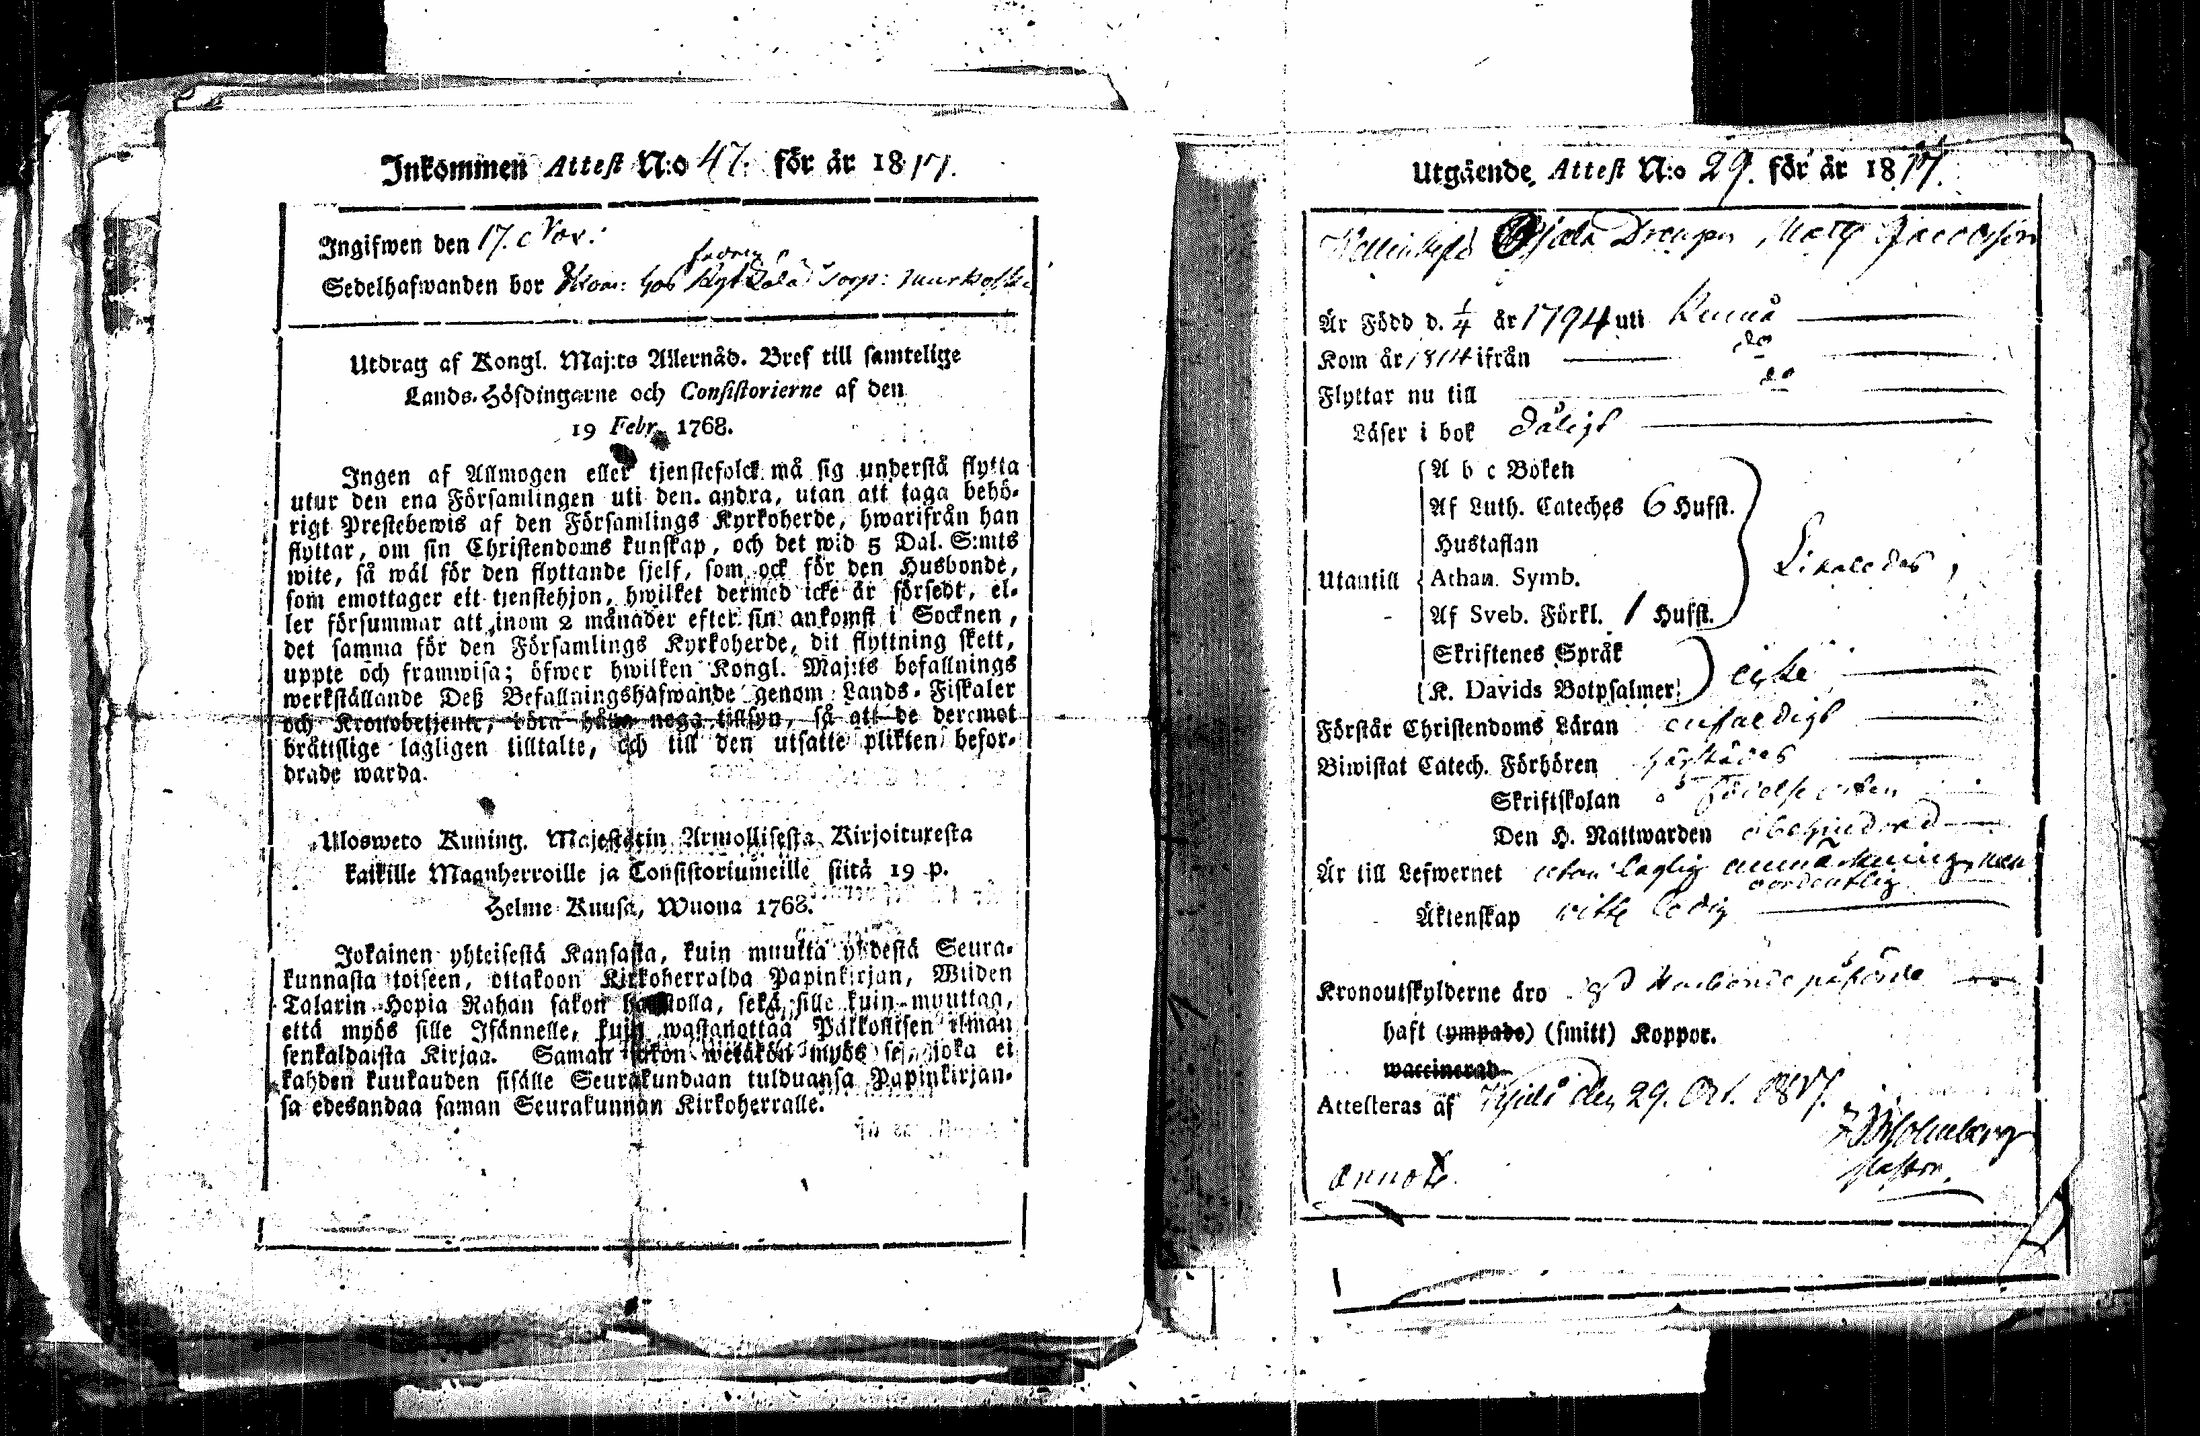 Inkommen Attest N:o 47. för år 1817.
Ingifwen den 17. Nov.
Sedelhafwanden bor
Utdrag af Kongl. Maj:ts Allernåd. Bref till samtelige
Lands-Höfdingarne och Consistorierne af den
19 Febr. 1768.
Ingen af Allmogen eller tjenstefolck må sig understå flytta
utur den ena Församlingen uti den andra, utan att taga behö-
rigt Prestebewis af den Församlings Kyrkoherde, hwarifrån han
flyttar, om sin Christendoms kunskap, och det wid 5 Dal. S:mts
wite, så wäl för den flyttande sjelf, som ock för den Husbonde,
som emottager ett tjenstehjon, hwilket dermed icke är försedt, el-
ler försummar att inom 2 månader efter sin ankomst i Socknen,
det samma för den Församlings Kyrkoherde, dit flyttning skett,
uppte och framwisa; öfwer hwilken Kongl. Maj:ts befallnings
werkställande Deß Befallningshafwande genom Lands-Fiskaler
och Kronobetjente, böra hålla noga tillsyn, så att de deremot
bråttslige lagligen tilltalte, och till den utsatte plikten befor-
drade warda.
Ulosweto Kuning. Majestätin Armollisesta Kirjoituxesta
kaikille Maanherroille ja Consistoriumeille siitä 19 p.
Helme Kuusa, Wuona 1768.
Jokainen yhteisestä Kansasta, kuin muutta yhdestä Seura-
kunnasta toiseen, ottakoon Kirkoherralda Papinkirjan, Wiiden
Talarin Hopia Rahan sakon haastolla, sekä sille kuin muuttaa,
että myös sille Isännelle, kuin wastanottaa Palkollisen ilman
senkaldaista Kirjaa. Saman sakon wetäkön myös se, joka ei
kahden kuukauden sisälle Seurakundaan tulduansa Papinkirjan-
sa edesandaa saman Seurakunnan Kirkoherralle.
Utgående Attest N:o 29. för år 1817.
Drengen Matts Jacobsson
Är Född d. 1/4 år 1794 uti
Kom år 1814 ifrån do
Flyttar nu till do
Läser i bok dåligt
A b c Boken
Af Luth. Cateches 6 Hufst.
Hustaflan
Utantill Athan. Symb. Likaledes,
Af Sveb. Förkl. 1 Hufst.
Skriftenes Språk
K. Davids Botpsalmer icke
Förstår Christendoms Läran enfaldigt
Biwistat Catech. Förhören härstädes
Skriftskolan å födelse orten
Den H. Nattwarden obehindrad
Är till Lefwernet utan laglig anmärkning, men
oordentlig
Äktenskap ledig
Kronoutskylderne äro Husbonde påförde
haft (ympade) (smitt) Koppor.
waccinerad
Attesteras af den 29. Oct. 1817.
Pastor.
annot.